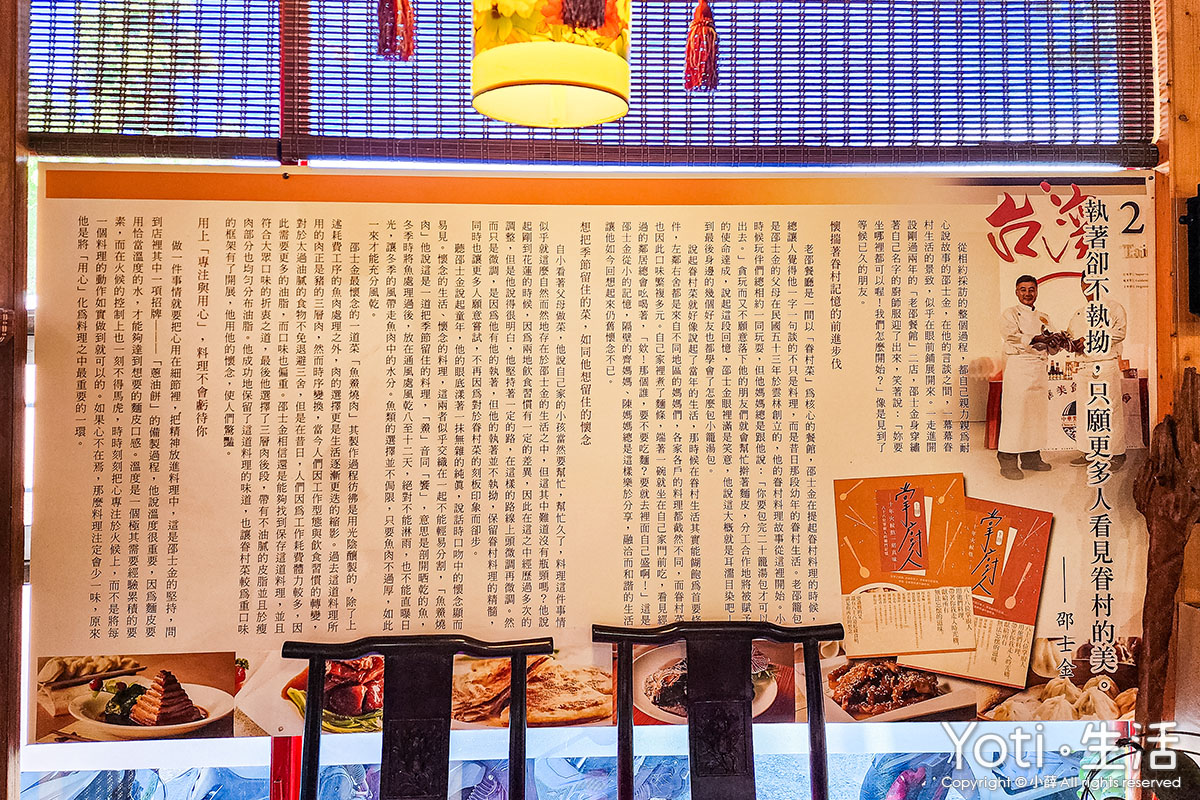 2
Tai
台灣
執著卻不執拗，只願更多人看見眷村的美。
——邵士金
掌廚人
掌廚人
從相約採訪的整個過程，都自己親力親為耐
心說故事的邵士金，在他的言談之間，一幕幕眷
村生活的景致，似乎在眼前鋪展開來。一走進開
設剛過兩年的「老邵餐館」二店，邵士金身穿繡
著自己名字的廚師服迎了出來，笑著說：「妳要
坐哪裡都可以喔！我們怎麼開始？」像是見到了
等候已久的朋友。
懷揣著眷村記憶的前進步伐
老邵餐廳是一間以「眷村菜」為核心的餐館，邵士金在提起眷村料理的時候，
總讓人覺得他一字一句談的不只是料理，而是昔日那段幼年的眷村生活。老邵籠包
是邵士金的父母在民國五十三年於雲林創立的，他的眷村料理故事從這裡開始。小
時候玩伴們總相約一同玩耍，但他媽媽總是跟他說：「你要包完二十籠湯包才可以
出去。」貪玩而又不願意落下他的朋友們就會幫忙擀著麵皮，分工合作地將被賦予
的使命達成，說起這段回憶，邵士金眼裡滿是笑意，他說這大概就是耳濡目染吧！
到最後身邊的幾個好友也都學會了怎麼包小籠湯包。
說起眷村菜就好像說起了當年的生活，那時候在眷村生活其實能餬飽爲首要條
件，左鄰右舍都是來自不同地區的媽媽們，各家各戶的料理都截然不同，而眷村菜
也因此口味繁複多元。自己家裡煮了麵條，端著一碗就坐在自己家門前吃，看見經
過的鄰居總會吆喝著，「欸！那個誰，要不要吃麵？要就去裡面自己盛啊！」這是
邵士金從小的記憶，隔壁的齊媽媽、陳媽媽總是這樣樂於分享，融洽而和諧的生活
讓他如今回想起來仍舊懷念不已。
想把季節留住的菜，如同他想留住的懷念
自小看著父母做菜，他說自己家的小孩當然要幫忙，幫忙久了，料理這件事情
似乎就這麼自然而然地存在於邵士金的生活之中，但這其中難道沒有瓶頸嗎？他說
起剛到花蓮的時候，因爲兩地飲食習慣有一定的差異，因此在這之中經歷過多次的
調整，但是他說得很明白，他堅持著一定的路，在這樣的路線上頭微調再微調。然
而只是微調，是因爲他有他的執著，但他的執著並不執拗，保留眷村料理的精髓，
同時也讓更多人願意嘗試，不再因爲對於眷村菜的刻板印象而卻步。
聽邵士金說起童年，他的眼底漾著一抹無雜的純真，說話時口吻中的懷念顯而
易見。懷念的生活、懷念的料理，這兩者似乎交織在一起不能輕易分割，「魚鯗燒
肉」他說這是一道把季節留住的料理，「鯗」音同「饗」，意思是剖開晒乾的魚，
冬季時將魚處理過後，放在通風處風乾八至十二天，絕對不能淋雨，也不能直曝日
光，讓冬季的風帶走魚肉中的水分。魚類的選擇並不侷限，只要魚肉不過厚，如此
一來才能充分風乾。
邵士金最懷念的一道菜「魚鯗燒肉」其製作過程彷彿是用光陰釀製的，除了上
述耗費工序的魚肉處理之外，肉的選擇更是生活逐漸更迭的縮影。過去這道料理所
用的肉正是豬的三層肉，然而時序變換，當今人們因工作型態與飲食習慣的轉變，
對於太過油膩的食物不免退避三舍，但是在昔日，人們因爲工作耗費體力較多，因
此需要更多的油脂，而口味也偏重。邵士金相信還是能夠找到保存這道料理，並且
符合大眾口味的折衷之道，最後他選擇了三層肉後段，帶有不油膩的皮脂並且於瘦
肉部分也均勻分布油脂。他成功地保留了這道料理的味道，也讓眷村菜較爲重口味
的框架有了開展，他用他的懷念，使人們驚豔。
用上「專注與用心」，料理不會虧待你
做一件事情就要把心用在細節裡，把精神放進料理中，這是邵士金的堅持，問
到店裡其中一項招牌——「蔥油餅」的備製過程，他說溫度很重要，因爲麵皮要
用恰當溫度的水，才能夠達到想要的麵皮口感。溫度是一個極其需要經驗累積的要
素，而在火候的控制上也一刻不得馬虎，時時刻刻把心專注於火候上，而不是將每
一個料理的動作如實做到就可以的。如果心不在焉，那麼料理注定會少一味，原來
他是將「用心」化爲料理之中最重要的一環。
Yoti·生活
Copyright © 小薛 All rights reserved